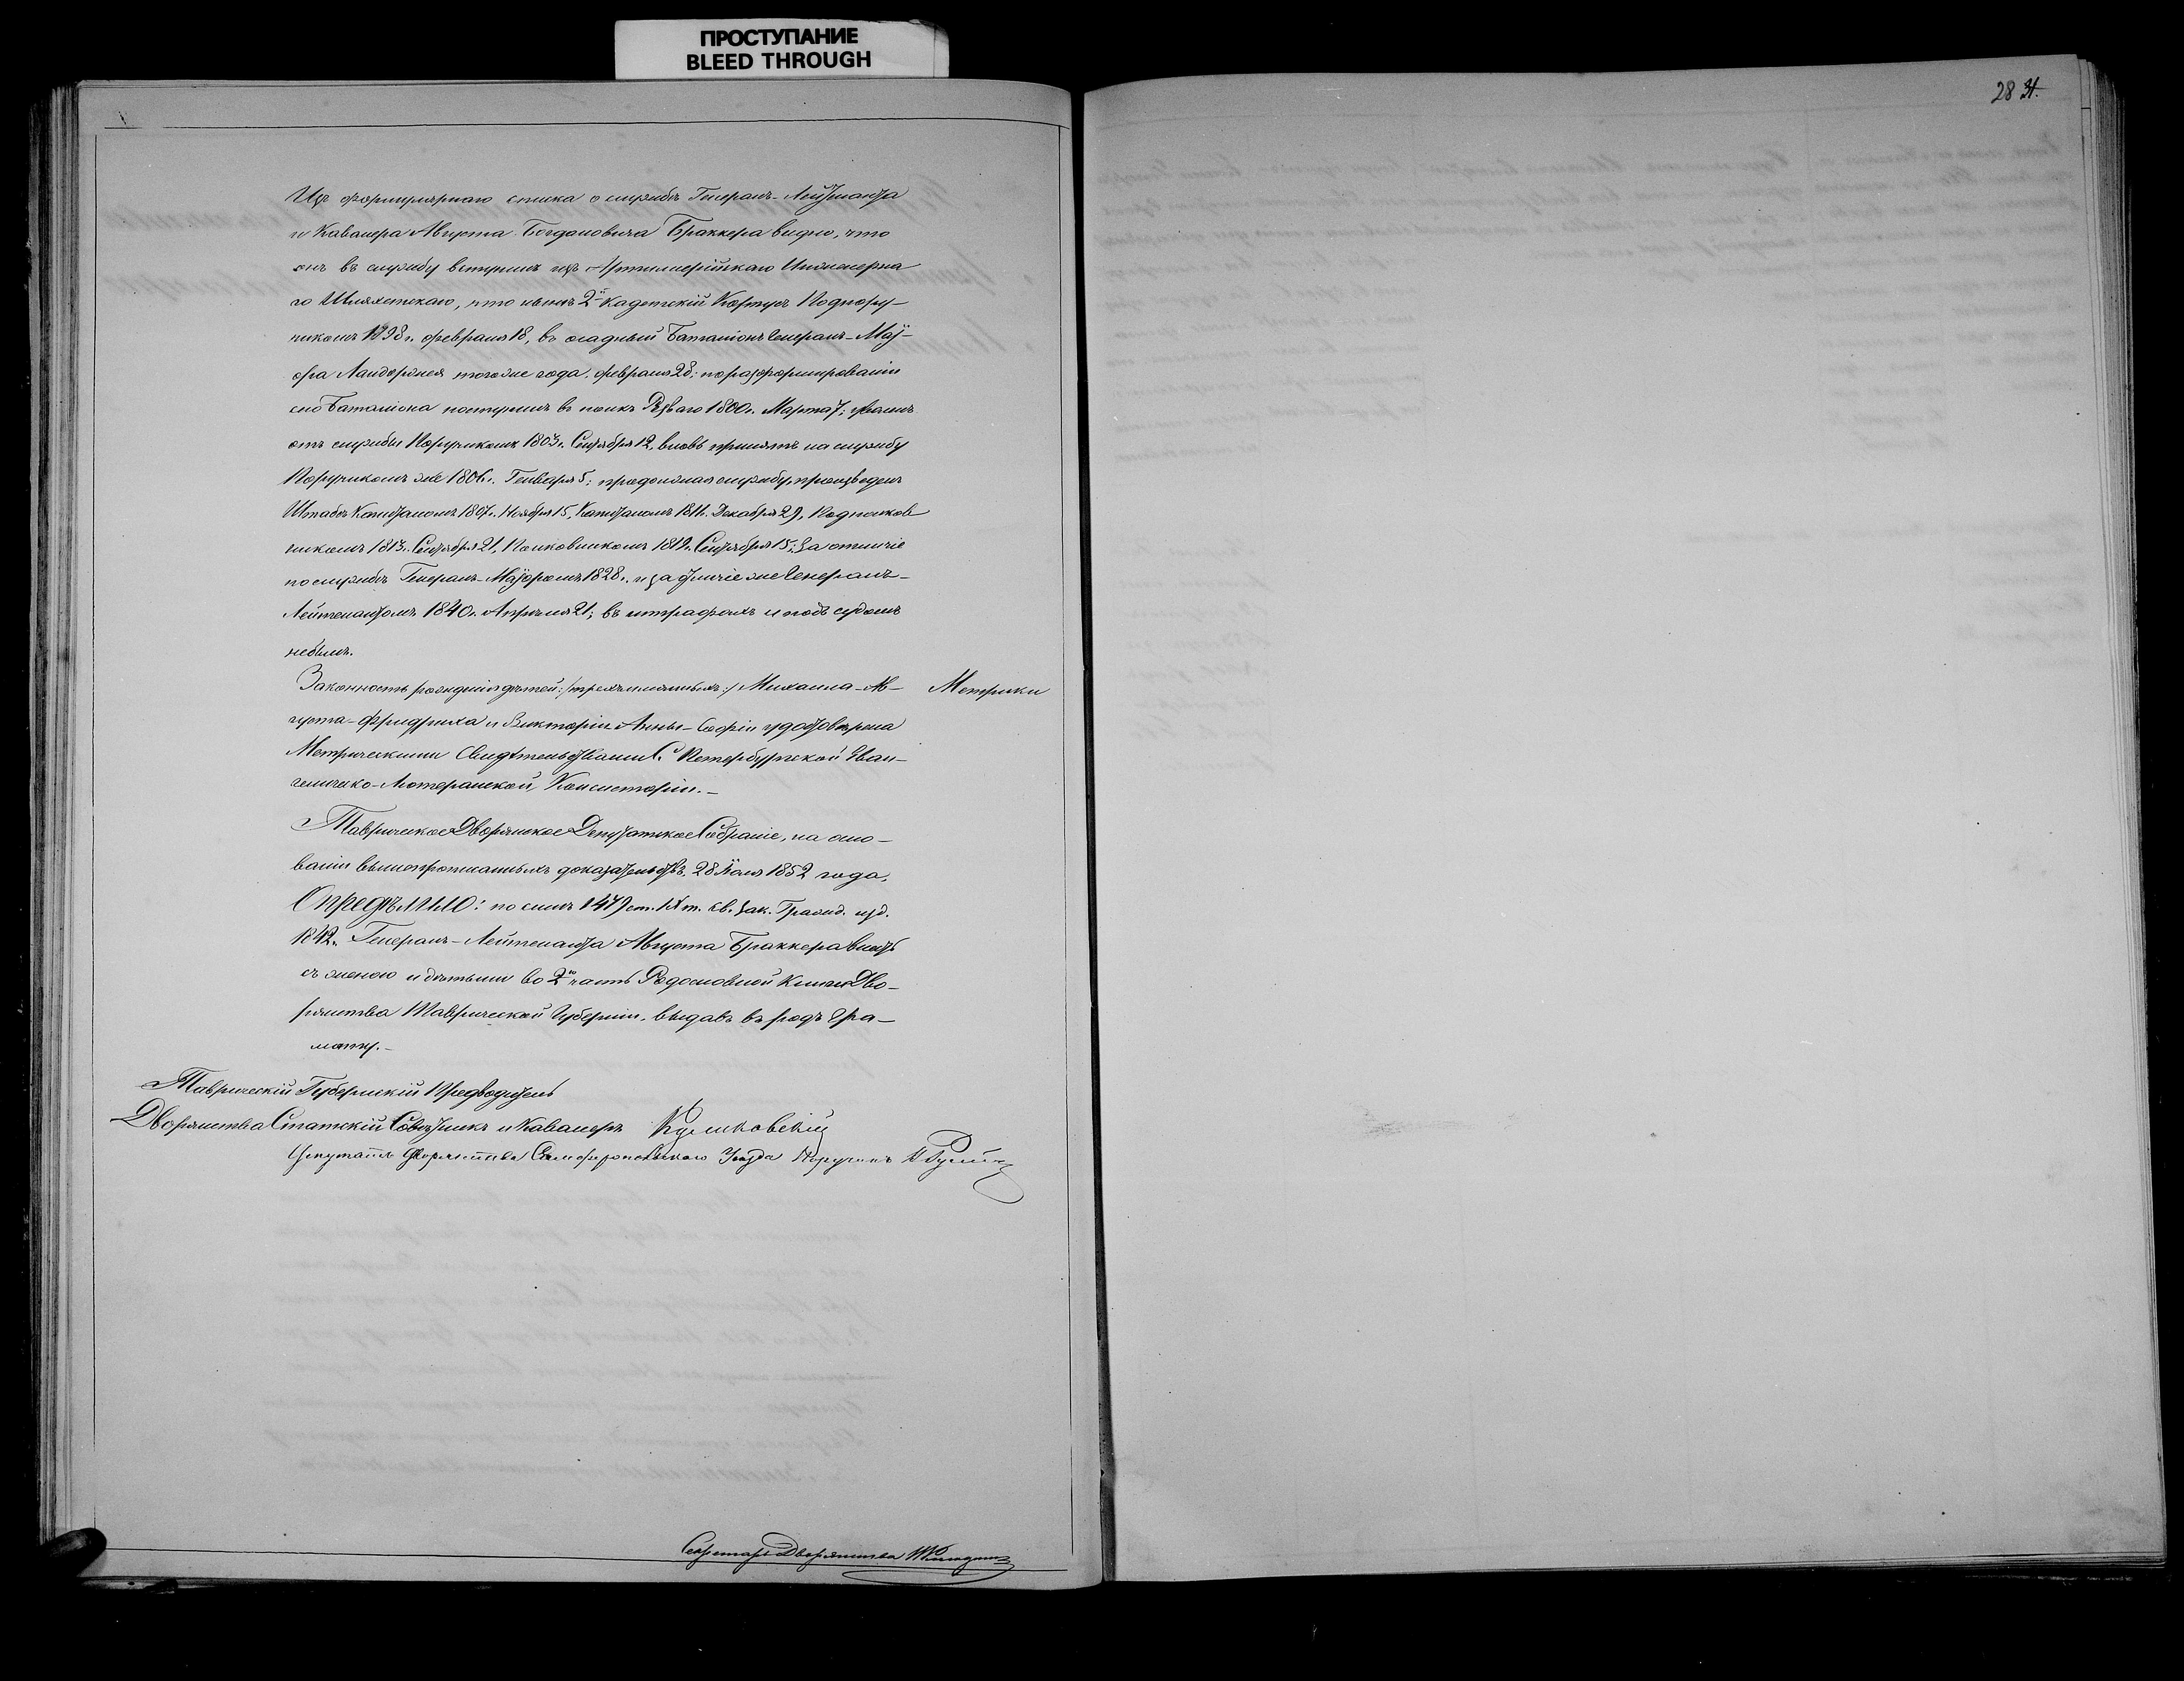 ПРОСТУПАНИЕ
BLEED THROUGH
28 31.
Изъ формулярнаго списка о службѣ Генералъ-Лейтенанта
и Кавалера Августа Богдановича Браккера видно, что
онъ въ службу вступилъ изъ Артиллерійскаго Инженерна
го Шляхетскаго, что нынѣ 2й Кадетскій Корпусъ Подпору-
чикомъ 1798г. февраля 18, въ осадный Баталіонъ Генералъ-Маіо-
ора года, февраля 28; по разформированіи
сего Баталіона поступилъ въ полкъ Рѣзваго 1800г. Марта 7;
отъ службы Порутчикомъ 1803г. Сентября 12, вновь принятъ на службу
Порутчикомъ же 1806г. Генваря 5; продолжая службу, произведенъ
Штабсъ Капитаномъ 1807г. Ноября 15, Капитаномъ 1811г. Декабря 29, Подполков
никомъ 1813г. Сентября 21, Полковникомъ 1819г. Сентября 15; за отличіе
по службѣ Генералъ-Маіоромъ 1828г. и за отличіе же Генералъ-
Лейтенантомъ 1840г. Апрѣля 21; въ штрафахъ и подъ судомъ
небылъ.
Законность рожденія дѣтей: /трехъимянныхъ:/ Михаила-Ав-
Метрики
густа-Фридриха и Викторіи-Анны-Софіи удостовѣрена
Метрическими Свидѣтельствами С. Петербургской Еван-
гелическо-Лютеранской Консисторіи.-
Таврическое Дворянское Депутатское Собраніе, на осно-
ваніи вышепрописанныхъ доказательствъ, 28 Іюля 1852 года,
Опредѣлило: по силѣ 1479 ст. IX т. св. Зак. Гражд. изд.
1842г. Генералъ-Лейтенанта Августа Браккера внесть
съ женою и дѣтьми во 2ю часть Родословной Книги Дво-
рянства Таврической Губерніи, выдавъ въ родъ Гра-
моту.-
Таврическій Губернскій Предводитель
Дворянства Статскій Совѣтникъ и Кавалеръ
Депутатъ Дворянства Симферопольскаго Уѣзда Поручикъ
Секретарь Дворянства